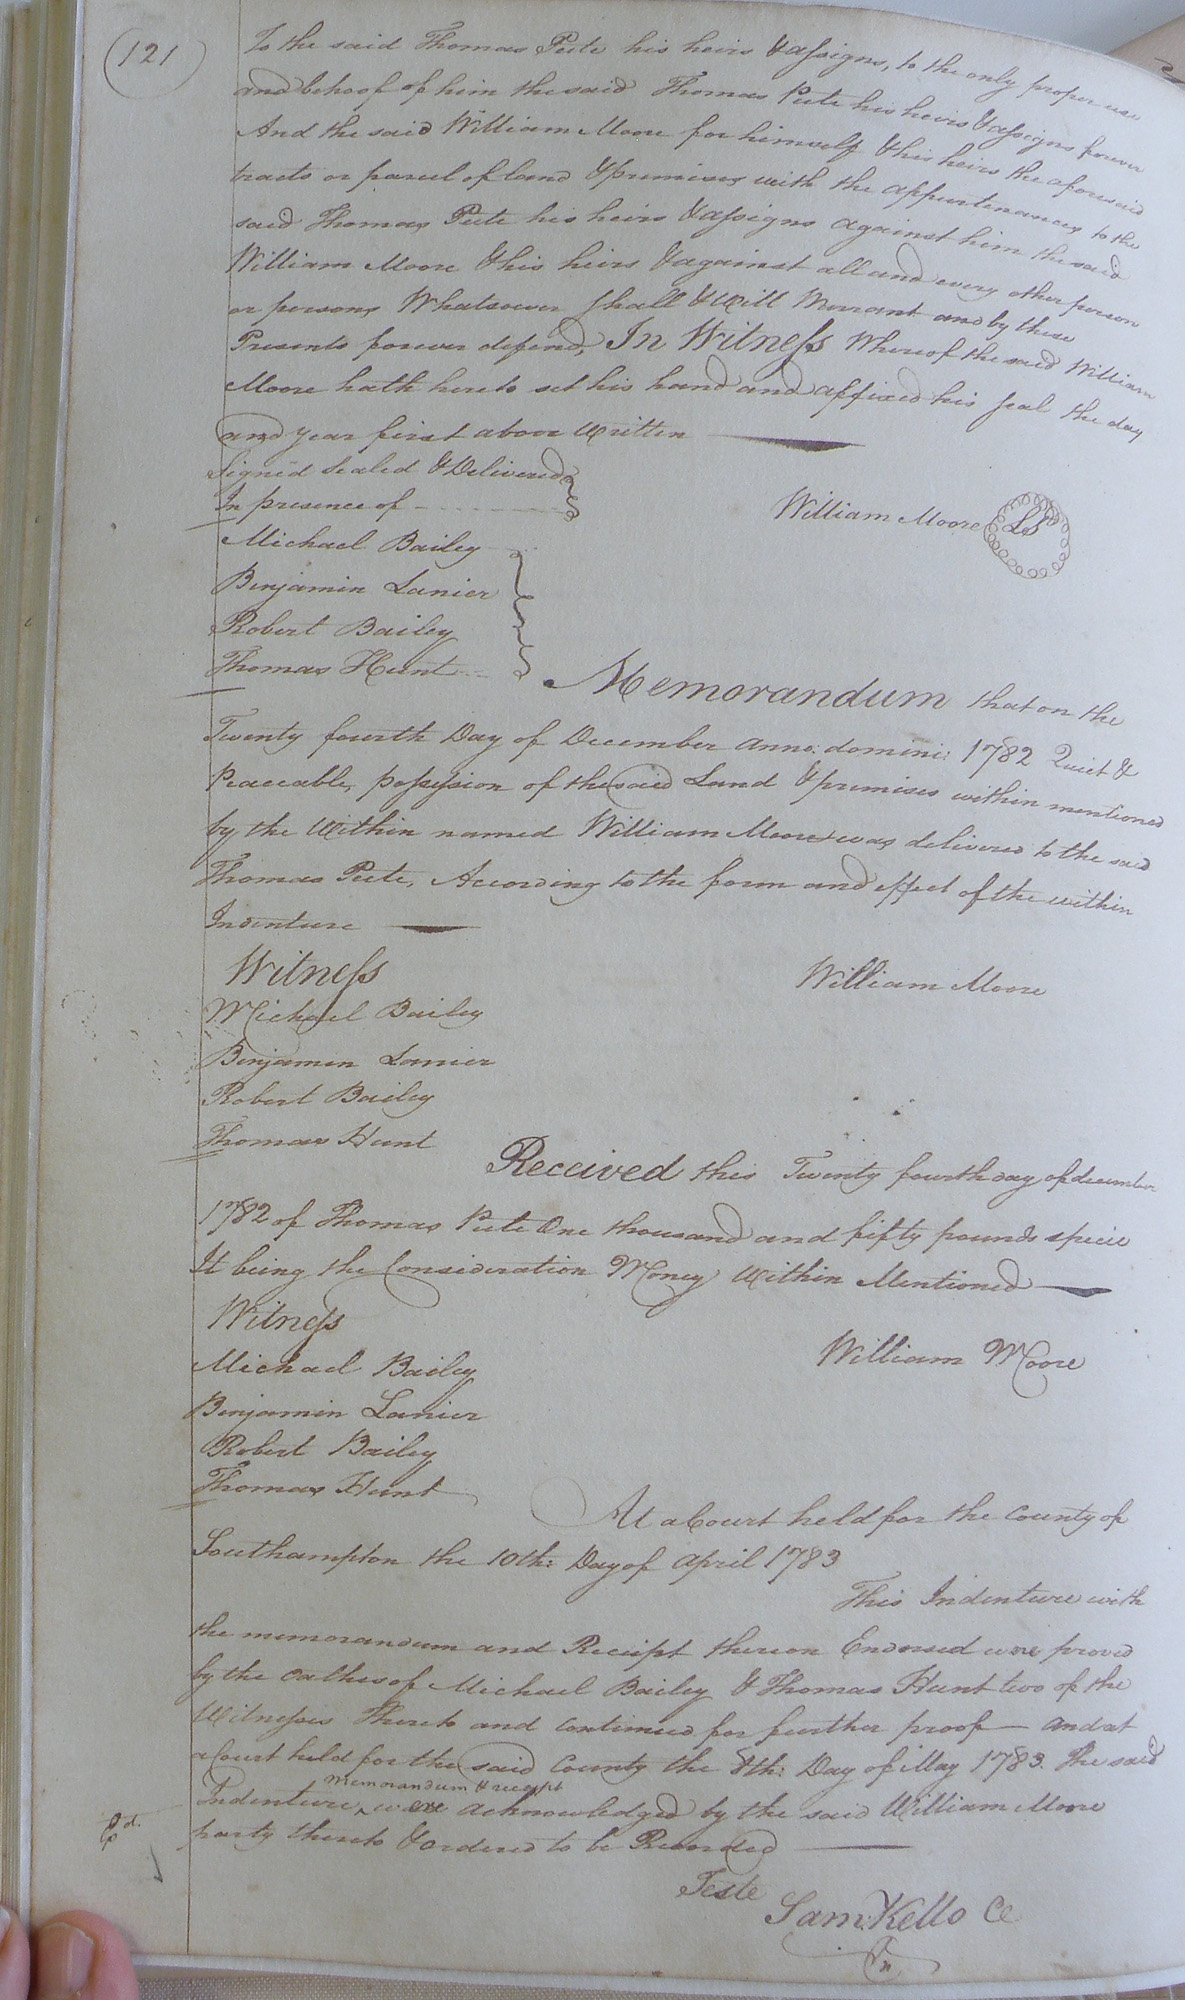 121
To the said Thomas Pete his heirs & assigns, to the only proper use
and behoof of him the said Thomas Pete his heirs & assigns forever
And the said William Moore for himself & his heirs the aforesaid
tracts or parcel of land & premises with the appurtenances to the
said Thomas Pete his heirs & assigns against him the said
William Moore & his heirs & against all and every other person
or persons Whatsoever shall & will Warrant and by these
Presents forever defend, In Witness Whereof the said William
Moore hath hereto set his hand and affixed his seal the day
and year first above Written
Signed Sealed & Delivered
In presence of
William Moore LS
Michael Bailey
Benjamin Lanier
Robert Bailey
Thomas Hunt
Memorandum that on the
Twenty fourth Day of December anno: domini: 1782 Quiet &
Peaceable, possession of the said Land & premises within mentioned
by the Within named William Moore was delivered to the said
Thomas Pete, According to the form and effect of the within
Indenture
Witness
William Moore
Michael Bailey
Benjamin Lanier
Robert Bailey
Thomas Hunt
Received this Twenty fourth day of december
1782 of Thomas Pete One thousand and fifty pounds specie
It being the Consideration Money Within Mentioned
Witness
William Moore
Michael Bailey
Benjamin Lanier
Robert Bailey
Thomas Hunt
At a Court held for the County of
Southampton the 10th: Day of April 1783
This Indenture with
the memorandum and Receipt thereon Endorsed were proved
by the oathes of Michael Bailey & Thomas Hunt two of the
Witnesses Thereto and continued for further proof — and at
a Court held for the said County the 8th: Day of May 1783. The said
Memorandum & receipt
Indenture ^ were acknowledged by the said William Moore
party thereto & ordered to be Recorded
Teste
Sam: Kello CC